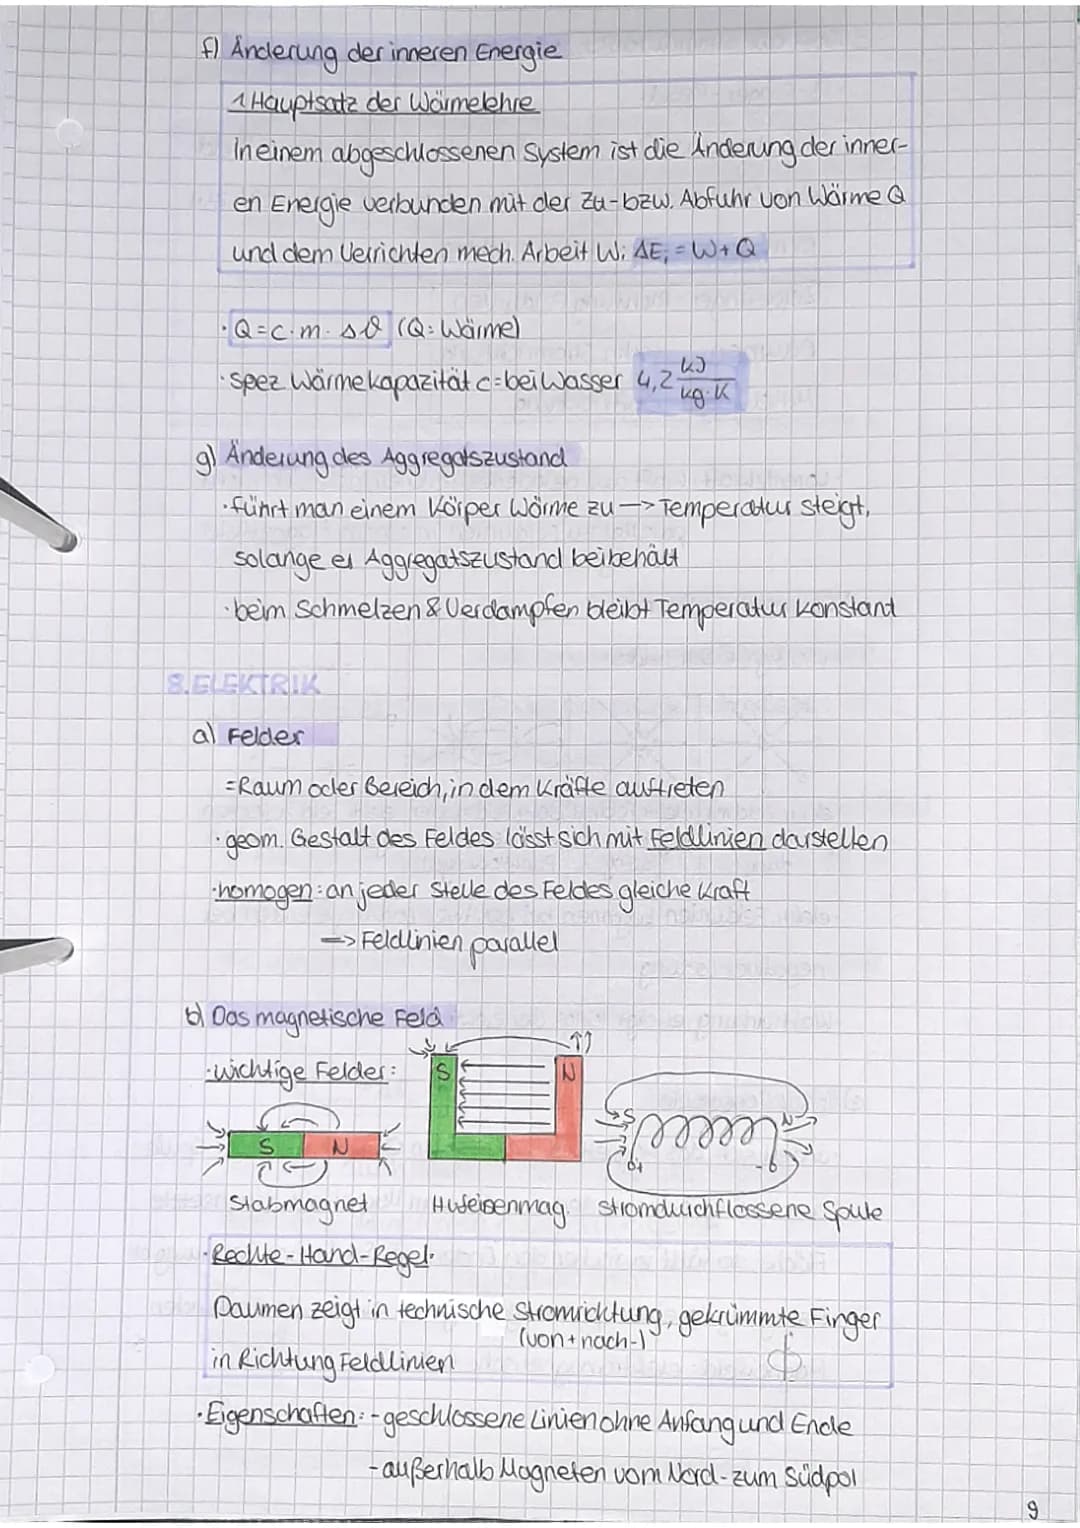 f) Änderung der inneren Energie
1 Hauptsatz der Wärmelehre
In einem abgeschlossenen System ist die Änderung der inner-
en Energie verbunden mit der Zu- bzw. Abfuhr von Wärme Q
und dem Verrichten mech. Arbeit W: ΔE; = W + Q
· Q = c · m · Δϑ (Q: Wärme)
· spez Wärmekapazität c = bei Wasser 4,2 kJ/kg·K
g) Änderung des Aggregatszustand
· führt man einem Körper Wärme zu —> Temperatur steigt,
solange er Aggregatszustand beibehält
· beim Schmelzen & Verdampfen bleibt Temperatur konstant
8. ELEKTRIK
a) Felder
= Raum oder Bereich, in dem Kräfte auftreten
· geom. Gestalt des Feldes lässt sich mit Feldlinien darstellen
· homogen: an jeder Stelle des Feldes gleiche Kraft
—> Feldlinien parallel
b) Das magnetische Feld
· wichtige Felder:
S N
S N
S N
+ -
Stabmagnet Hufeisenmag. stromdurchflossene Spule
· Rechte-Hand-Regel:
Daumen zeigt in technische Stromrichtung, gekrümmte Finger
(von + nach -)
in Richtung Feldlinien
· Eigenschaften: - geschlossene Linien ohne Anfang und Ende
- außerhalb Magneten vom Nord- zum Südpol
9